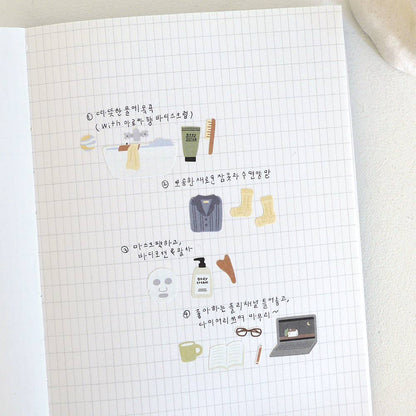 ① 따뜻한 물에 목욕
(with 아로마 향 바디스크럽)
② 뽀송한 새로운 잠옷과 수면양말
③ 마스크팩하고,
바디로션 듬뿍 발라
④ 좋아하는 플리 채널 틀어놓고,
다이어리 쓰며 마무리~
BODY